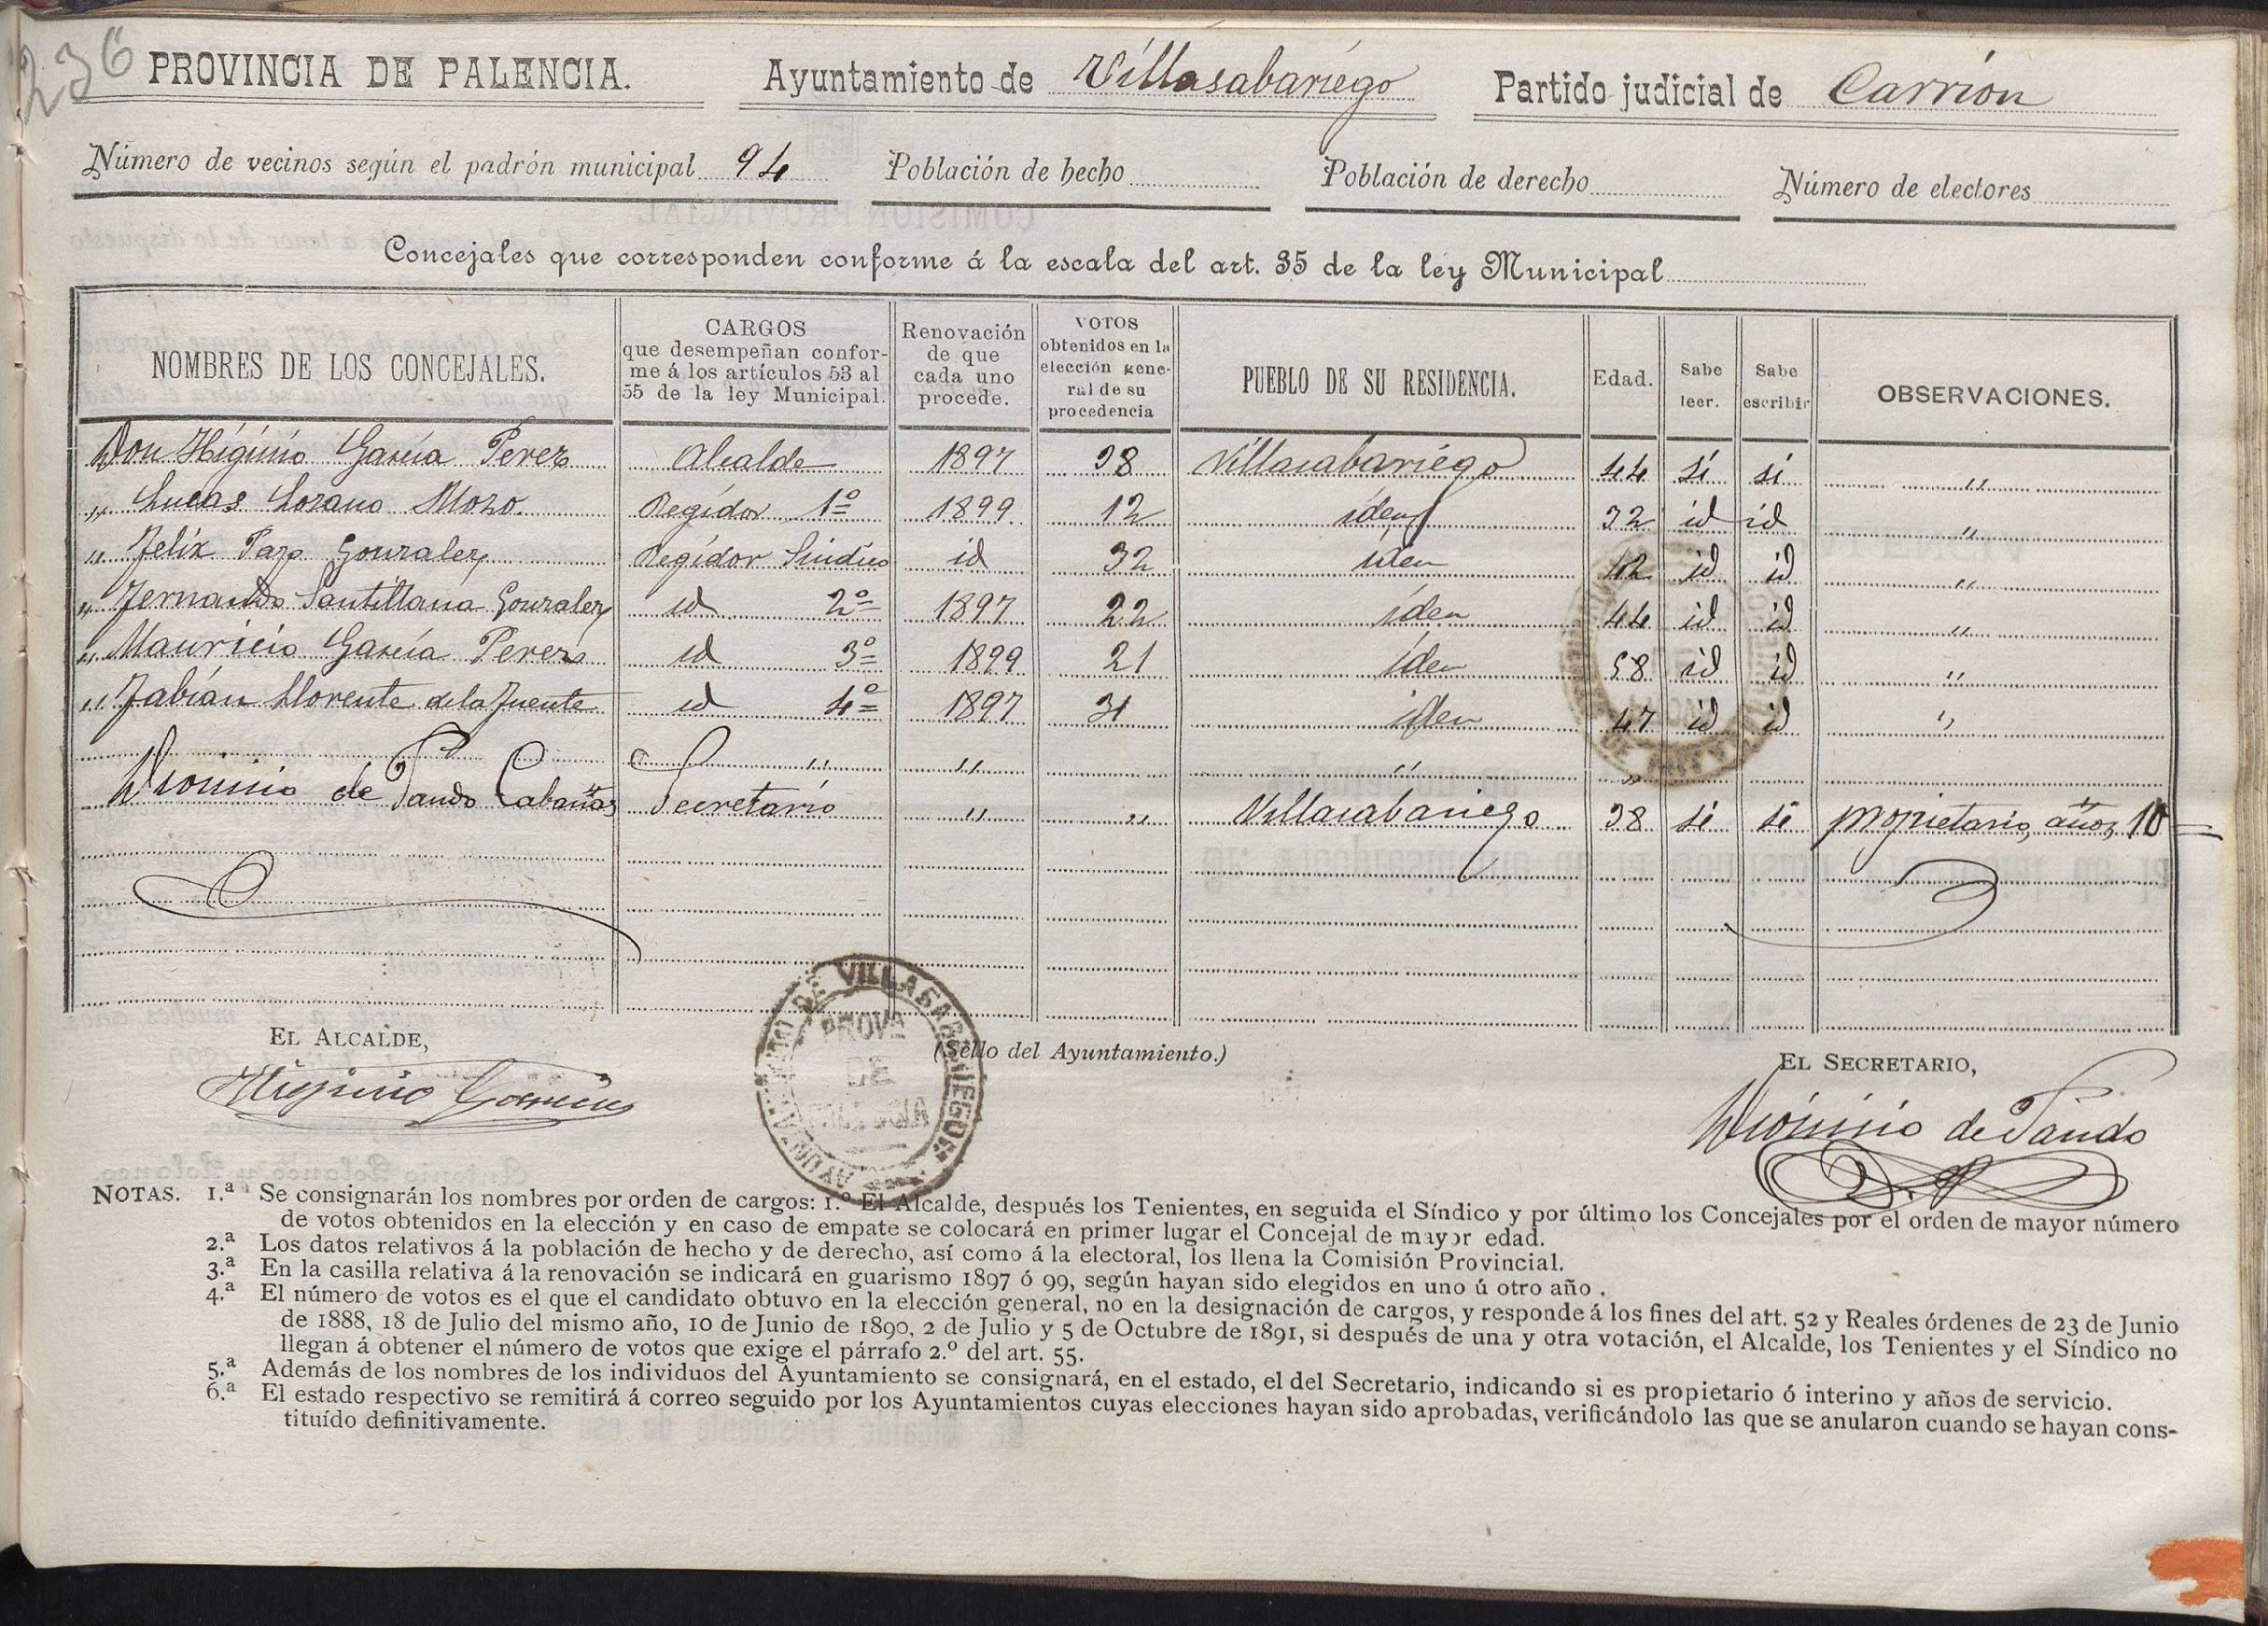 236
PROVINCIA DE PALENCIA. Ayuntamiento de Villasabariego Partido judicial de Carrion
Número de vecinos según el padrón municipal 94 Población de hecho Población de derecho Número de electores
Concejales que corresponden conforme á la escala del art. 35 de la ley Municipal
NOMBRES DE LOS CONCEJALES. CARGOS que desempeñan confor- me á los artículos 53 al 55 de la ley Municipal. Renovación de que cada uno procede. VOTOS obtenidos en la elección gene- ral de su procedencia PUEBLO DE SU RESIDENCIA. Edad. Sabe leer. Sabe escribir OBSERVACIONES.
Don Higinio García Perez Alcalde 1897 38 Villasabariego 44 sí sí "
" Lucas Lozano Mozo. Regidor 1º 1899 12 iden 32 id id "
" Felix Pazo Gonzalez Regidor Sindico id 32 iden 42 id id "
" Fernando Santillana Gonzalez id 2º 1897 22 iden 44 id id "
" Mauricio García Perez id 3º 1899 21 iden 58 id id "
" Fabián Llorente de la Fuente id 4º 1897 31 iden 47 id id "
" " " "
Dioninio de Pando Cabañas Secretario " " Villasabariego 38 sí sí propietario, años, 10
EL ALCALDE, (Sello del Ayuntamiento.) EL SECRETARIO,
Higinio García Dioninio de Pando
AYUNTAMIENTO DE VILLASABARIEGO
PROVA
DE
PALENCIA
NOTAS. 1.ª Se consignarán los nombres por orden de cargos: 1.º El Alcalde, después los Tenientes, en seguida el Síndico y por último los Concejales por el orden de mayor número
de votos obtenidos en la elección y en caso de empate se colocará en primer lugar el Concejal de mayor edad.
2.ª Los datos relativos á la población de hecho y de derecho, así como á la electoral, los llena la Comisión Provincial.
3.ª En la casilla relativa á la renovación se indicará en guarismo 1897 ó 99, según hayan sido elegidos en uno ú otro año .
4.ª El número de votos es el que el candidato obtuvo en la elección general, no en la designación de cargos, y responde á los fines del art. 52 y Reales órdenes de 23 de Junio
de 1888, 18 de Julio del mismo año, 10 de Junio de 1890, 2 de Julio y 5 de Octubre de 1891, si después de una y otra votación, el Alcalde, los Tenientes y el Síndico no
llegan á obtener el número de votos que exige el párrafo 2.º del art. 55.
5.ª Además de los nombres de los individuos del Ayuntamiento se consignará, en el estado, el del Secretario, indicando si es propietario ó interino y años de servicio.
6.ª El estado respectivo se remitirá á correo seguido por los Ayuntamientos cuyas elecciones hayan sido aprobadas, verificándolo las que se anularon cuando se hayan cons-
tituído definitivamente.